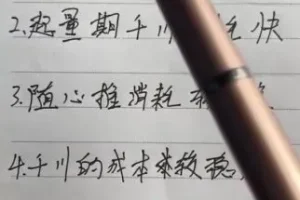 2.起量期千川 快
3.随心推消耗
4.千川的成本来较稳